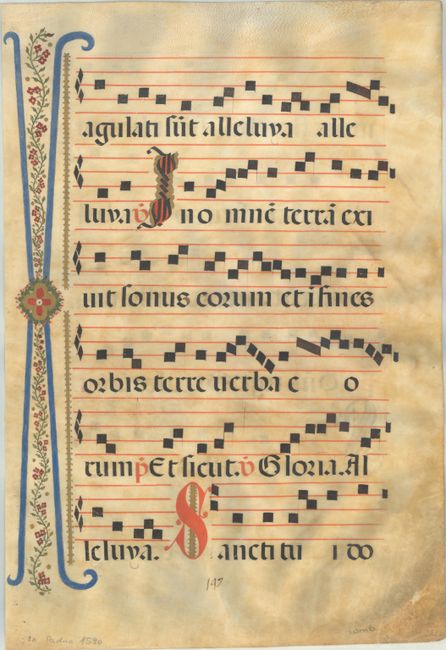 agulati sūt alleluya alle
luya ℣ In o mnē terrā exi
uit sonus eorum et i fines
orbis terre uerba e o
rum p̄ Et sicut. ℣ Gloria. Al
leluya. Sancti tu i do
147
ex Padua 1590